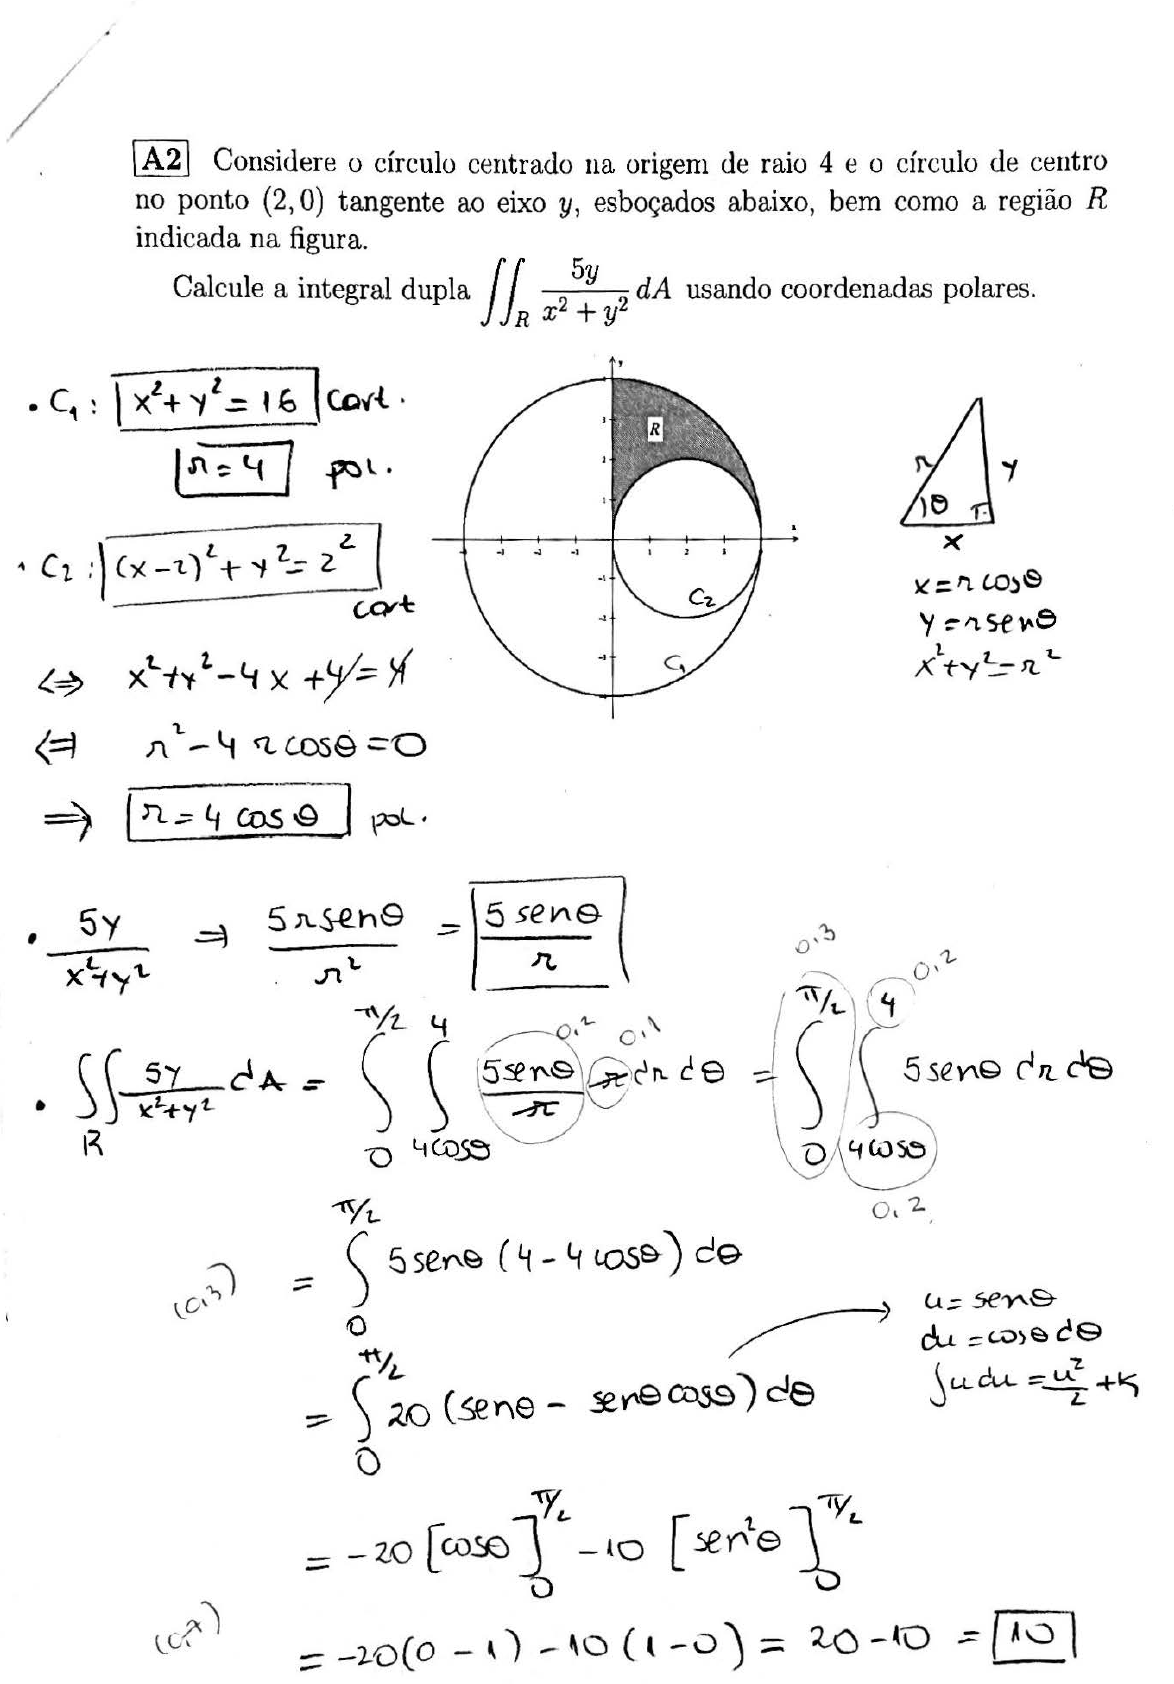 A2 Considere o círculo centrado na origem de raio 4 e o círculo de centro
no ponto (2,0) tangente ao eixo y, esboçados abaixo, bem como a região R
indicada na figura.
Calcule a integral dupla ∬_R 5y/(x²+y²) dA usando coordenadas polares.
• C₁: x²+y²=16 cart.
r=4 pol.
• C₂: (x-2)²+y²=2²
cart
⇔ x²+y²-4x+4=4
⇔ r²-4rcosθ=0
⇒ r=4 cosθ pol.
y
R
C₂
C₁
r y
θ
x
x=rcosθ
y=rsenθ
x²+y²=r²
• 5y/(x²+y²) ⇒ 5rsenθ/r² = 5senθ/r
0,3
0,2
0,2 0,1
• ∬_R 5y/(x²+y²) dA = ∫_0^{π/2} ∫_{4cosθ}^4 5senθ/r r dr dθ = ∫_0^{π/2} ∫_{4cosθ}^4 5senθ dr dθ
0,2
(0,3) = ∫_0^{π/2} 5senθ(4-4cosθ)dθ
u=senθ
du=cosθdθ
∫udu=u²/2+K
= ∫_0^{π/2} 20(senθ - senθcosθ)dθ
= -20[cosθ]_0^{π/2} -10[sen²θ]_0^{π/2}
= -20(0-1)-10(1-0) = 20-10 = 10